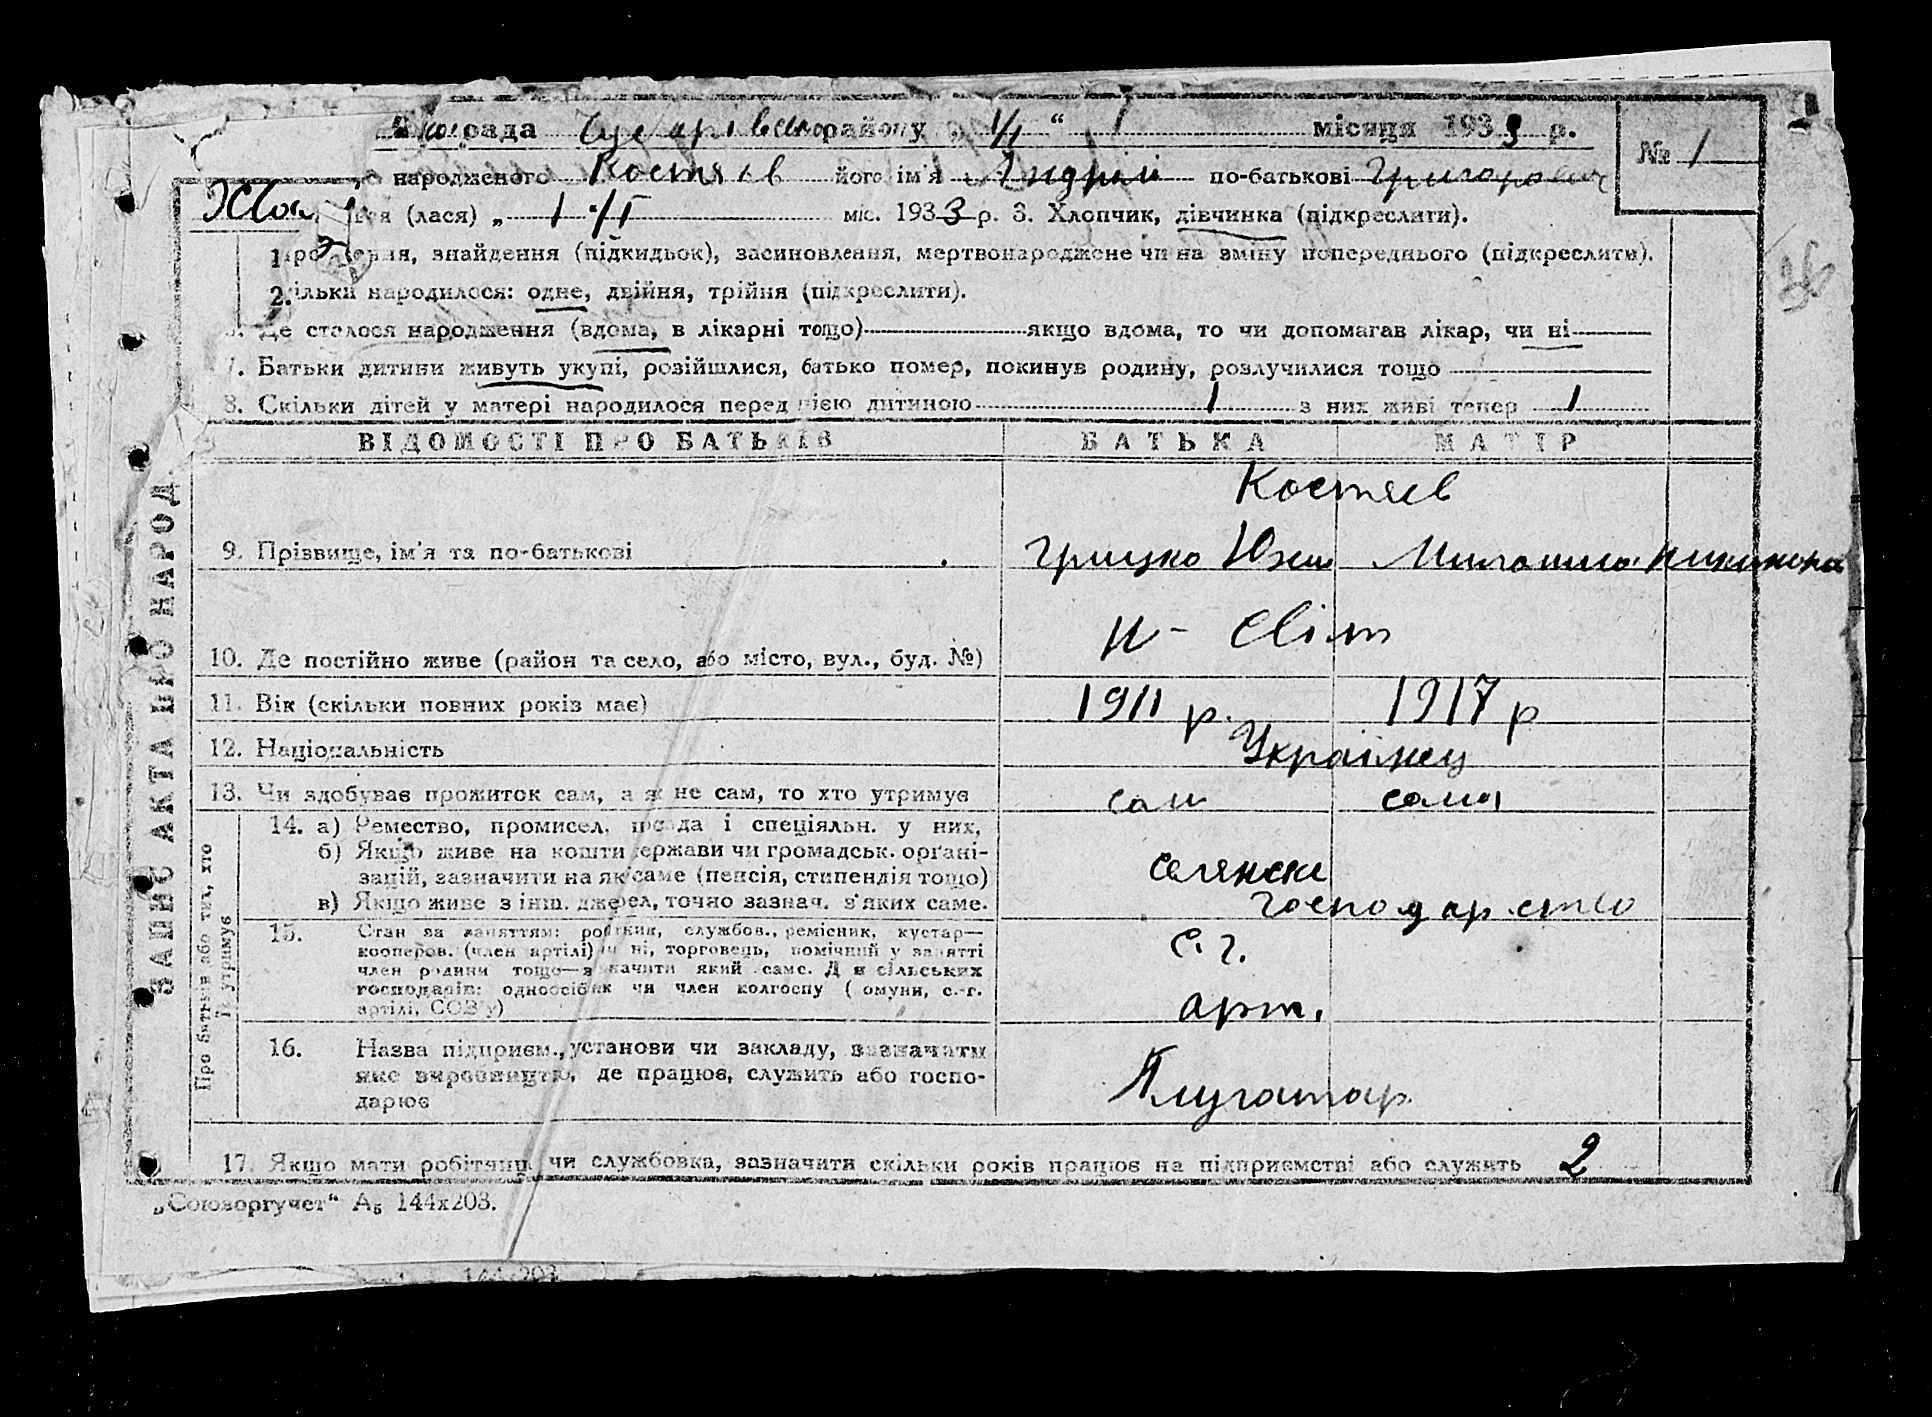 рада району „ 1/I “ I місяця 1933 р.
№ 1
народженого Костяєв його ім'я Андрій по-батькові Григорович
(лася) „ 1 “/I міс. 1933 р. 3. Хлопчик, дівчинка (підкреслити).
1. знайдення (підкидьок), засиновлення, мертвонароджене чи на зміну попереднього (підкреслити).
2. народилося: одне, двійня, трійня (підкреслити).
Де сталося народження (вдома, в лікарні тощо) якщо вдома, то чи допомагав лікар, чи ні
7. Батьки дитини живуть укупі, розійшлися, батько помер, покинув родину, розлучилися тощо
8. Скільки дітей у матері народилося перед цією дитиною 1 з них живі тепер 1
ВІДОМОСТІ ПРО БАТЬКІВ БАТЬКА МАТІР
ЗАПИС АКТА ПРО НАРОД
Костяєв
9. Прізвище, ім'я та по-батькові Грицко
Н - Світ
10. Де постійно живе (район та село, або місто, вул., буд. №)
11. Вік (скільки повних років має) 1911 р. 1917 р
12. Національність Українец
13. Чи здобуває прожиток сам, а як не сам, то хто утримує сам сама
Про батьків або тих, хто
їх утримує
14. а) Ремество, промисел, посада і спеціяльн. у них,
б) Якщо живе на кошти держави чи громадськ. органі-
зацій, зазначити на які саме (пенсія, стипендія тощо)
в) Якщо живе з інш. джерел, точно зазнач. з'яких саме.
селянске
господарство
15. Стан за заняттям: робітник, службов., ремісник, кустар—
кооперов. (член артілі) чи ні, торговець, помічний у занятті
член родини тощо—зазначити який саме. Для сільських
господарів: одноосібник чи член колгоспу (комуни, с.-г.
артілі, СОЗ'у)
с. г.
арт.
16. Назва підприєм., установи чи закладу, зазначити
яке виробництво, де працює, служить або госпо-
дарює
Плугатар
17. Якщо мати робітниця чи службовка, зазначити скільки років працює на підприємстві або служить 2
„Союзоргучет“ А₅ 144х203.